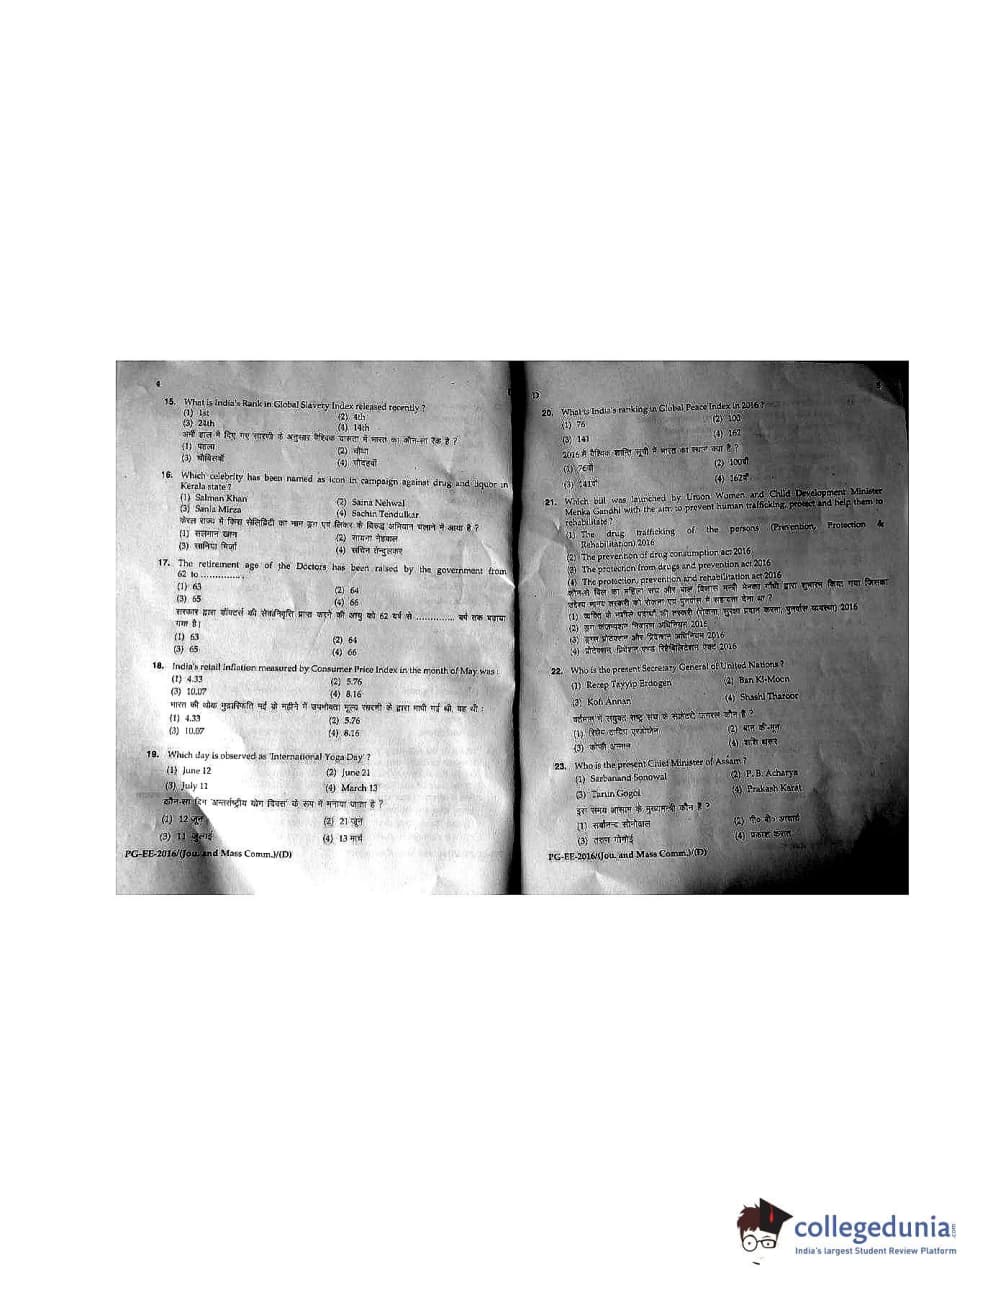 4
15. What is India's Rank in Global Slavery Index released recently ?
(1) 1st
(2) 4th
(3) 24th
(4) 14th
अभी हाल में दिए गए सारणी के अनुसार वैश्विक दासता में भारत का कौन-सा रैंक है ?
(1) पहला
(2) चौथा
(3) चौबिसवाँ
(4) चौदहवाँ
16. Which celebrity has been named as icon in campaign against drug and liquor in
Kerala state ?
(1) Salman Khan
(2) Saina Nehwal
(3) Sania Mirza
(4) Sachin Tendulkar
केरल राज्य में किस सेलिब्रिटी का नाम ड्रग एवं लिकर के विरुद्ध अभियान चलाने में आया है ?
(1) सलमान खान
(2) सायना नेहवाल
(3) सानिया मिर्ज़ा
(4) सचिन तेन्दुलकर
17. The retirement age of the Doctors has been raised by the government from
62 to ..............
(1) 63
(2) 64
(3) 65
(4) 66
सरकार द्वारा डॉक्टर्स की सेवानिवृत्ति प्राप्त करने की आयु को 62 वर्ष से .............. वर्ष तक बढ़ाया
गया है।
(1) 63
(2) 64
(3) 65
(4) 66
18. India's retail inflation measured by Consumer Price Index in the month of May was :
(1) 4.33
(2) 5.76
(3) 10.07
(4) 8.16
भारत की थोक मुद्रास्फिति मई के महीने में उपभोक्ता मूल्य सारणी के द्वारा मापी गई थी, वह थी :
(1) 4.33
(2) 5.76
(3) 10.07
(4) 8.16
19. Which day is observed as 'International Yoga Day' ?
(1) June 12
(2) June 21
(3) July 11
(4) March 13
कौन-सा दिन 'अन्तर्राष्ट्रीय योग दिवस' के रूप में मनाया जाता है ?
(1) 12 जून
(2) 21 जून
(3) 11 जुलाई
(4) 13 मार्च
PG-EE-2016/(Jou. and Mass Comm.)/(D)
D
5
20. What is India's ranking in Global Peace Index in 2016 ?
(1) 76
(2) 100
(3) 141
(4) 162
2016 में वैश्विक शान्ति सूची में भारत का स्थान क्या है ?
(1) 76वाँ
(2) 100वाँ
(3) 141वाँ
(4) 162वाँ
21. Which bill was launched by Union Women and Child Development Minister
Menka Gandhi with the aim to prevent human trafficking, protect and help them to
rehabilitate ?
(1) The drug trafficking of the persons (Prevention, Protection &
Rehabilitation) 2016
(2) The prevention of drug consumption act 2016
(3) The protection from drugs and prevention act 2016
(4) The protection, prevention and rehabilitation act 2016
कौन-से बिल का महिला संघ और बाल विकास मन्त्री मेनका गाँधी द्वारा शुभारंभ किया गया जिसका
उद्देश्य मानव तस्करी को रोकना एवं पुनर्वास में सहायता देना था ?
(1) व्यक्ति के नशीले पदार्थों की तस्करी (रोकना, सुरक्षा प्रदान करना, पुनर्वास व्यवस्था) 2016
(2) ड्रग कंजम्पशन निवारण अधिनियम 2016
(3) ड्रग्स प्रोटेक्शन और प्रिवेंशन अधिनियम 2016
(4) प्रोटेक्शन, प्रिवेंशन एण्ड रिहैबिलिटेशन एक्ट 2016
22. Who is the present Secretary General of United Nations ?
(1) Recep Tayyip Erdogen
(2) Ban Ki-Moon
(3) Kofi Annan
(4) Shashi Tharoor
वर्तमान में संयुक्त राष्ट्र संघ के सेक्रेटरी जनरल कौन है ?
(1) रिसेप टायिप एरडोगेन
(2) बान की-मून
(3) कोफी अन्नान
(4) शशि थरूर
23. Who is the present Chief Minister of Assam ?
(1) Sarbanand Sonowal
(2) P. B. Acharya
(3) Tarun Gogoi
(4) Prakash Karat
इस समय आसाम के मुख्यमन्त्री कौन हैं ?
(1) सर्बानन्द सोनोवाल
(2) पी० बी० आचार्य
(3) तरुण गोगोई
(4) प्रकाश करात
PG-EE-2016/(Jou. and Mass Comm.)/(D)
collegedunia.com
India's largest Student Review Platform